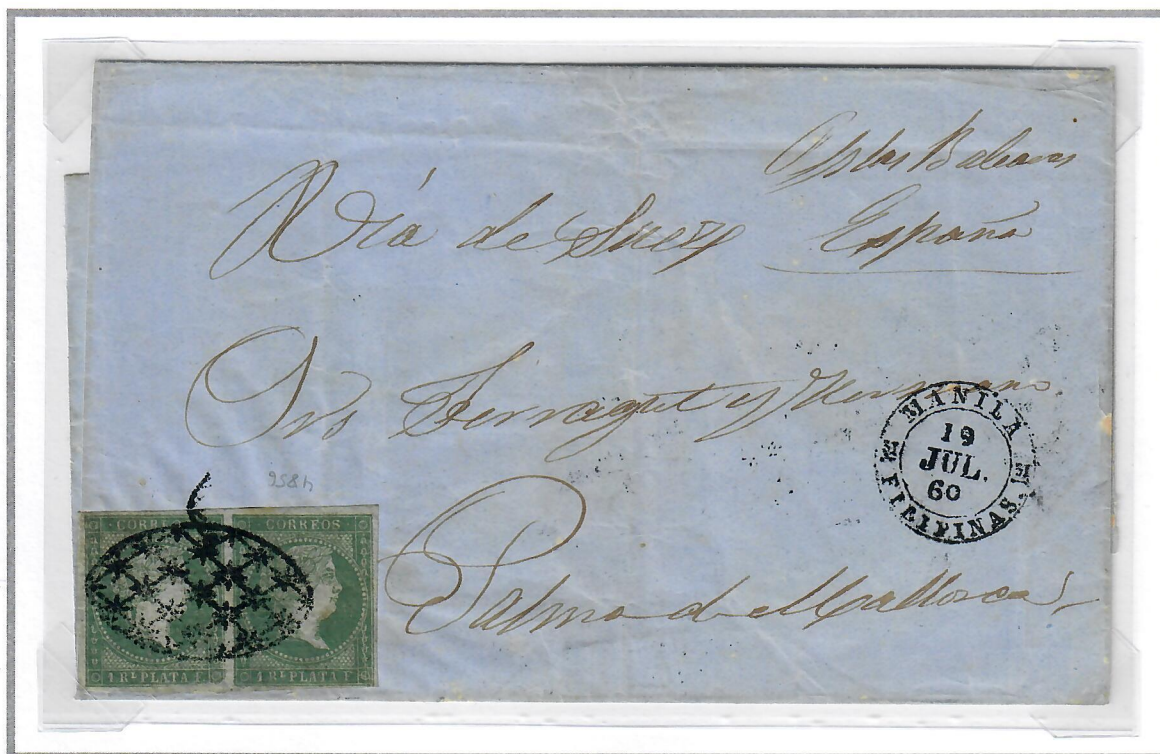 Islas Baleares
Vía de Suez España
Ferragut y Hermano
Palma de Mallorca
MANILA
19
JUL.
60
FILIPINAS.
CORREOS
1 RL PLATA F.
CORREOS
1 RL PLATA F.